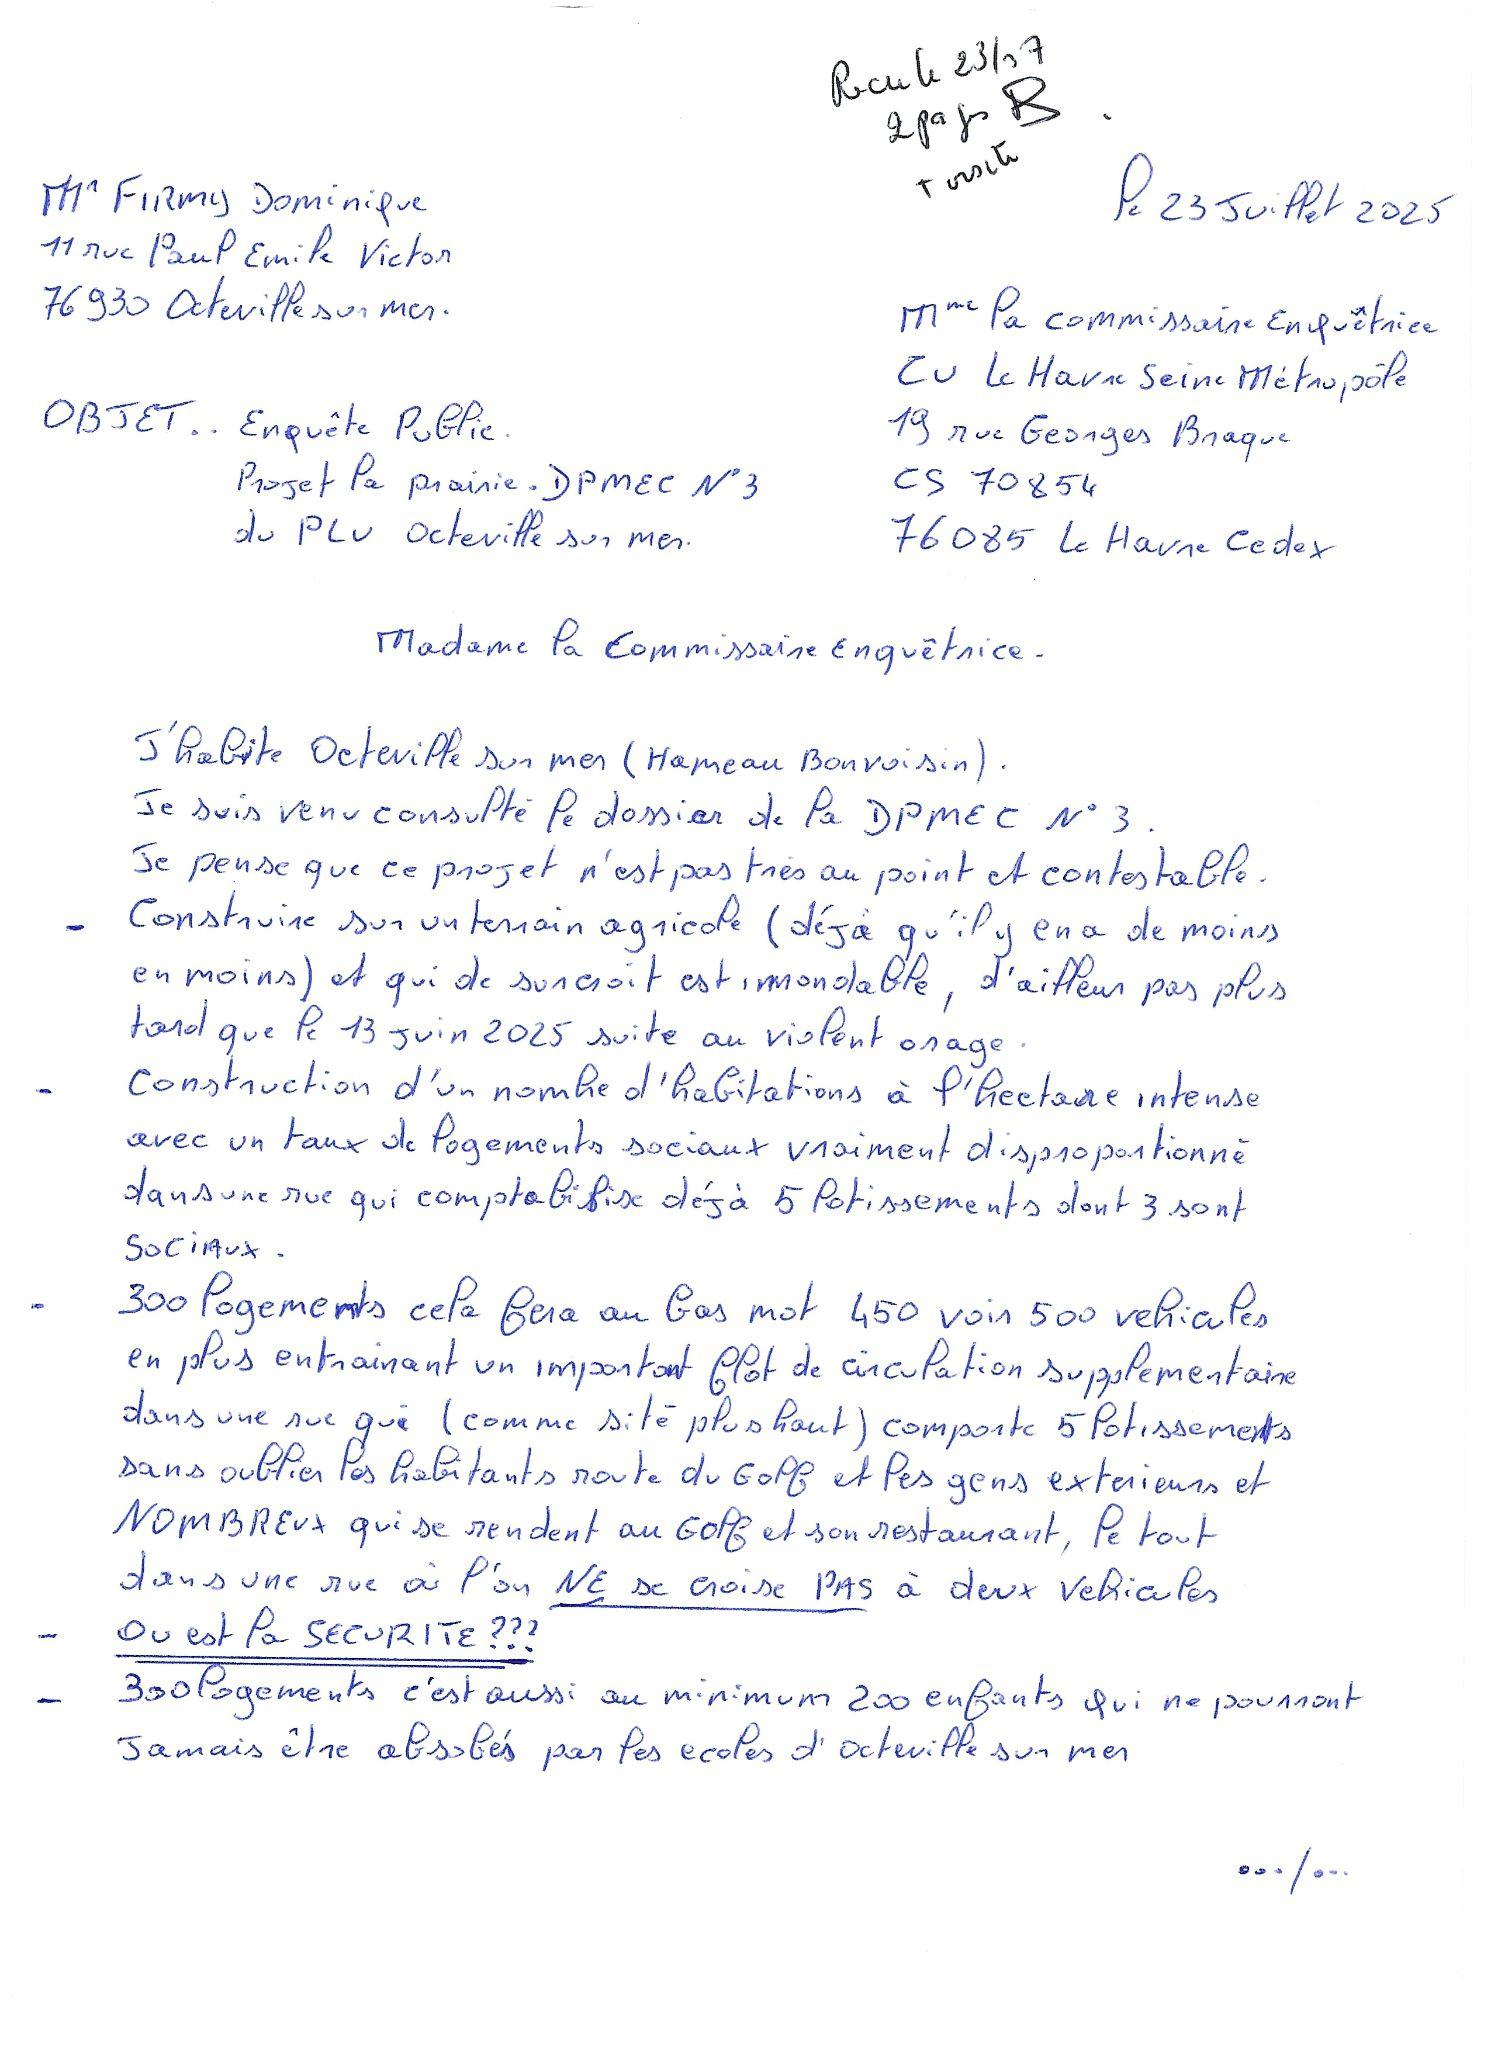 Reçu le 23/07
2 pages
+ visite
Mr FIRMY Dominique
11 rue Paul Emile Victor
76930 Octeville sur mer.
le 23 Juillet 2025
Mme la commissaire Enquêtrice
CU Le Havre Seine Métropôle
19 rue Georges Braque
CS 70854
76085 Le Havre Cedex
OBJET.. Enquête Public.
Projet la prairie. DPMEC N°3
du PLU Octeville sur mer.
Madame la Commissaire Enquêtrice.
J'habite Octeville sur mer (Hameau Bonvoisin).
Je suis venu consulté le dossier de la DPMEC N°3.
Je pense que ce projet n'est pas très au point et contestable.
- Construire sur un terrain agricole (déjà qu'il y en a de moins
en moins) et qui de surcroit est innondable, d'ailleur pas plus
tard que le 13 juin 2025 suite au violent orage.
- Construction d'un nombre d'habitations à l'hectare intense
avec un taux de logements sociaux vraiment disproportionné
dans une rue qui comptabilise déjà 5 lotissements dont 3 sont
SOCIAUX.
- 300 logements cela fera au bas mot 450 voir 500 vehicules
en plus entrainant un important flot de circulation supplementaire
dans une rue qui (comme sité plus haut) comporte 5 lotissements
sans oublier les habitants route du Golf et les gens exterieurs et
NOMBREUX qui se rendent au Golf et son restaurant, le tout
dans une rue où l'on NE se croise PAS à deux vehicules
- OU est la SECURITE???
- 300 logements c'est aussi au minimum 200 enfants qui ne pourront
Jamais être absobés par les ecoles d'Octeville sur mer
.../...